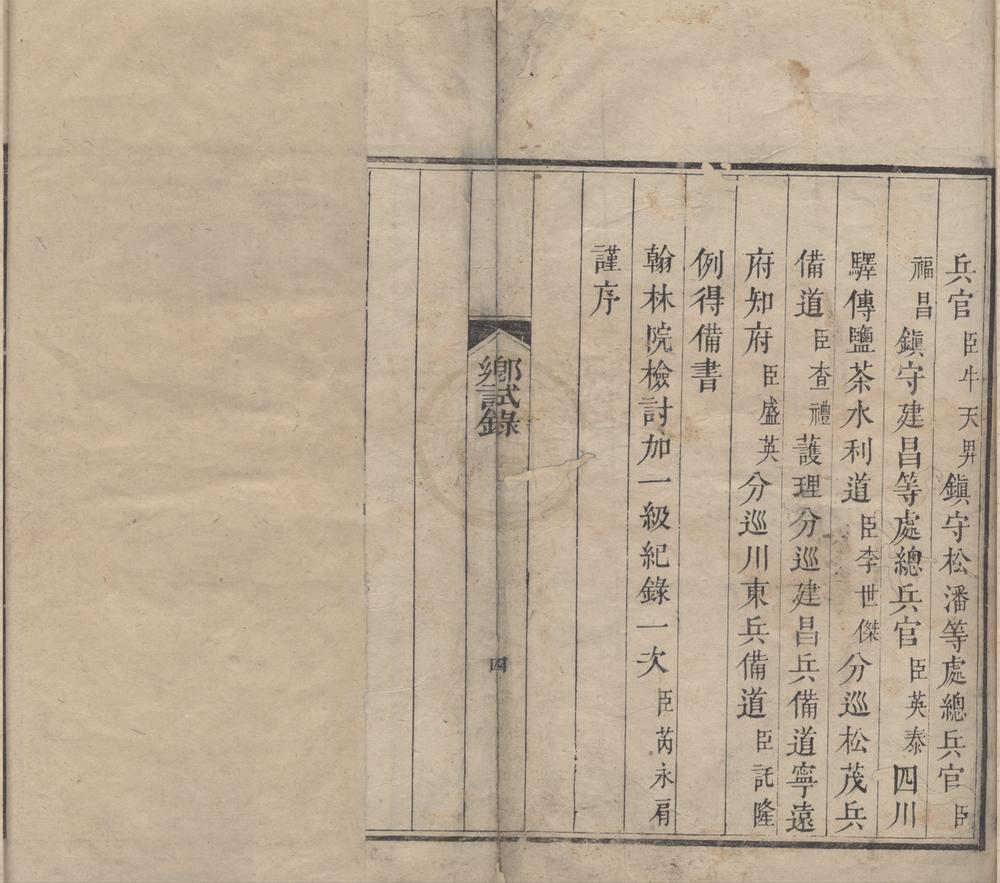 兵官臣牛天畀鎮守松潘等處總兵官臣
福昌鎮守建昌等處總兵官臣英泰四川
驛傳鹽茶水利道臣李世傑分巡松茂兵
備道臣查禮護理分巡建昌兵備道寧遠
府知府臣盛英分巡川東兵備道臣託隆
例得備書
翰林院檢討加一級紀錄一次臣芮永肩
謹序
鄉試錄
四